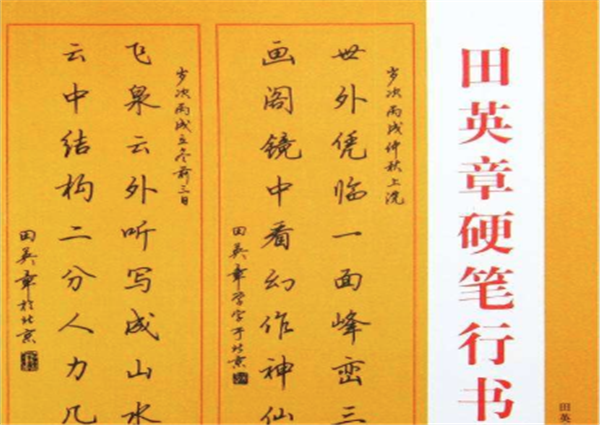 田英
田英章硬笔行书
岁次丙戌仲秋上浣
世外凭临一面峰峦三
画阁镜中看幻作神仙
田英章習字于北京
岁次丙戌立冬前三日
飞泉云外听写成山水
云中结构二分人力八
田英章於北京